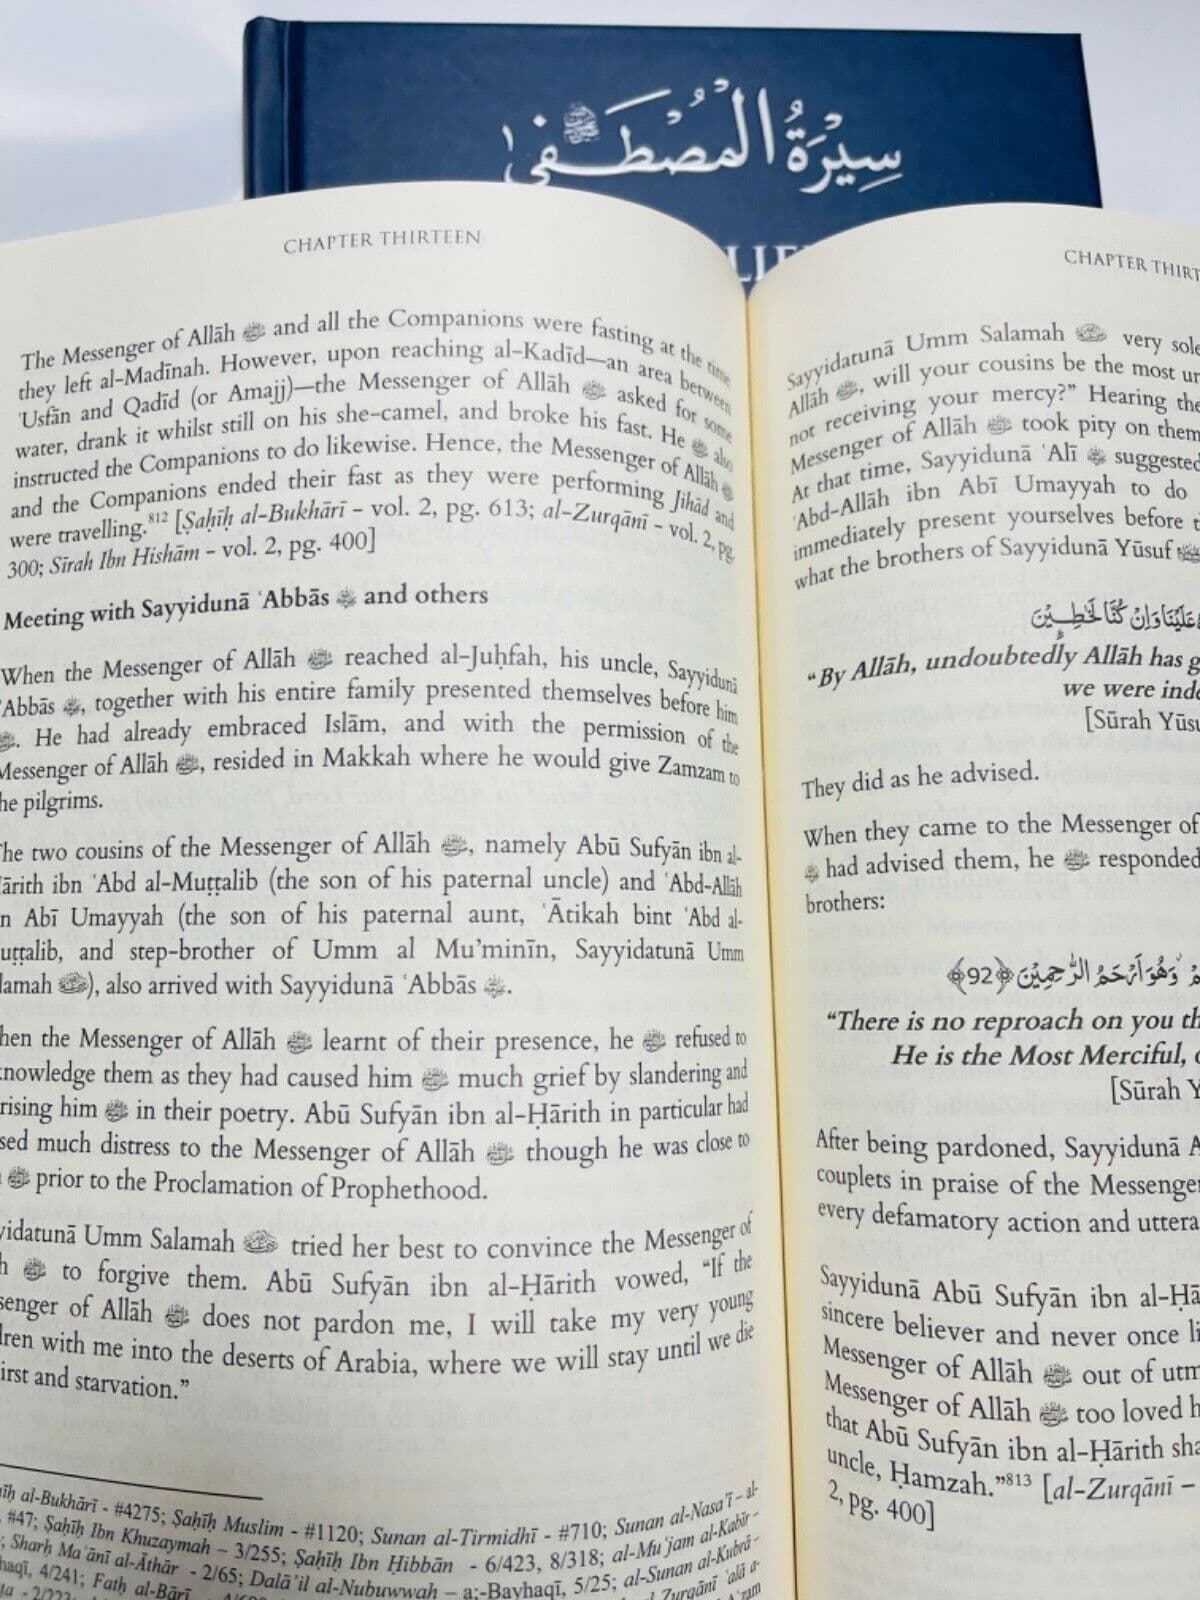 سِيْرَةُ الْمُصْطَفٰى ﷺ
CHAPTER THIRTEEN
The Messenger of Allāh ﷺ and all the Companions were fasting at the time
they left al-Madīnah. However, upon reaching al-Kadīd—an area between
ʿUsfān and Qadīd (or Amajj)—the Messenger of Allāh ﷺ asked for some
water, drank it whilst still on his she-camel, and broke his fast. He ﷺ also
instructed the Companions to do likewise. Hence, the Messenger of Allāh ﷺ
and the Companions ended their fast as they were performing Jihād and
were travelling.812 [Ṣaḥīḥ al-Bukhārī – vol. 2, pg. 613; al-Zurqānī – vol. 2, pg.
300; Sīrah Ibn Hishām – vol. 2, pg. 400]
Meeting with Sayyidunā ʿAbbās and others
When the Messenger of Allāh ﷺ reached al-Juḥfah, his uncle, Sayyidunā
ʿAbbās, together with his entire family presented themselves before him
ﷺ. He had already embraced Islām, and with the permission of the
Messenger of Allāh ﷺ, resided in Makkah where he would give Zamzam to
he pilgrims.
he two cousins of the Messenger of Allāh ﷺ, namely Abū Sufyān ibn al-
ārith ibn ʿAbd al-Muṭṭalib (the son of his paternal uncle) and ʿAbd-Allāh
n Abī Umayyah (the son of his paternal aunt, ʿĀtikah bint ʿAbd al-
uṭṭalib, and step-brother of Umm al Mu’minīn, Sayyidatunā Umm
lamah), also arrived with Sayyidunā ʿAbbās.
hen the Messenger of Allāh ﷺ learnt of their presence, he ﷺ refused to
knowledge them as they had caused him ﷺ much grief by slandering and
rising him ﷺ in their poetry. Abū Sufyān ibn al-Ḥārith in particular had
sed much distress to the Messenger of Allāh ﷺ though he was close to
ﷺ prior to the Proclamation of Prophethood.
yidatunā Umm Salamah tried her best to convince the Messenger of
h ﷺ to forgive them. Abū Sufyān ibn al-Ḥārith vowed, “If the
senger of Allāh ﷺ does not pardon me, I will take my very young
dren with me into the deserts of Arabia, where we will stay until we die
irst and starvation.”
īḥ al-Bukhārī - #4275; Ṣaḥīḥ Muslim - #1120; Sunan al-Tirmidhī - #710; Sunan al-Nasa’ī – al-
#47; Ṣaḥīḥ Ibn Khuzaymah – 3/255; Ṣaḥīḥ Ibn Ḥibbān - 6/423, 8/318; al-Muʿjam al-Kabīr –
; Sharḥ Maʿānī al-Āthār - 2/65; Dalā’il al-Nubuwwah – a;-Bayhaqī, 5/25; al-Sunan al-Kubrā –
haqī, 4/241; Fatḥ al-Bārī
CHAPTER THIRT
Sayyidatunā Umm Salamah very sole
Allāh ﷺ, will your cousins be the most un
not receiving your mercy?” Hearing the
Messenger of Allāh ﷺ took pity on them
At that time, Sayyidunā ʿAlī suggested
ʿAbd-Allāh ibn Abī Umayyah to do
immediately present yourselves before t
what the brothers of Sayyidunā Yūsuf
عَلَيْنَا وَاِنْ كُنَّا لَخٰطِـِٕيْنَ
“By Allāh, undoubtedly Allāh has g
we were inde
[Sūrah Yūsu
They did as he advised.
When they came to the Messenger of
had advised them, he ﷺ responded
brothers:
وَهُوَ اَرْحَمُ الرّٰحِمِيْنَ ﴿92﴾
“There is no reproach on you th
He is the Most Merciful, o
[Sūrah Y
After being pardoned, Sayyidunā A
couplets in praise of the Messenger
every defamatory action and uttera
Sayyidunā Abū Sufyān ibn al-Ḥā
sincere believer and never once li
Messenger of Allāh ﷺ out of utm
Messenger of Allāh ﷺ too loved h
that Abū Sufyān ibn al-Ḥārith sha
uncle, Ḥamzah.”813 [al-Zurqānī –
2, pg. 400]